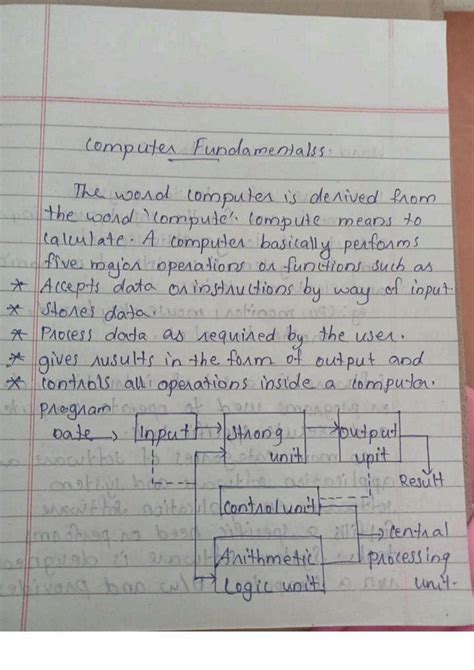 Computer Fundamentalss.
The word computer is derived from
the word 'compute'. compute means to
calculate. A computer basically performs
five major operations or functions such as
* Accepts data or instructions by way of input.
* Stores data.
* Process data as required by the user.
* gives rusults in the form of output and
* controls all operations inside a computer.
Program
Date → Input Strong output
unit unit
Result
Control unit
central
Arithmetic processing
Logic unit unit.